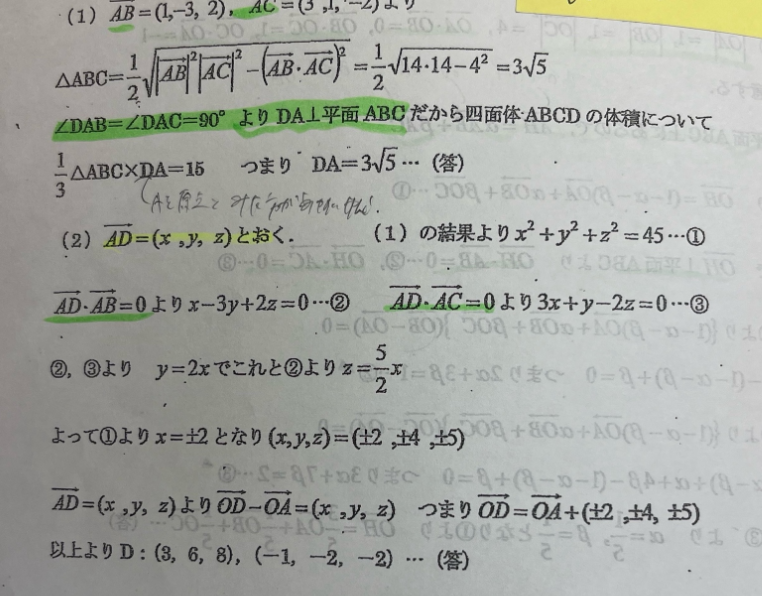 (1) AB=(1,-3, 2), AC=(3 ,1, -2)より
△ABC=1/2√(|AB|²|AC|²-(AB·AC)²)=1/2√(14·14-4²)=3√5
∠DAB=∠DAC=90° よりDA⊥平面ABCだから四面体ABCDの体積について
1/3△ABC×DA=15 つまり DA=3√5… (答)
Aを原点と
(2) AD=(x ,y, z)とおく. (1) の結果よりx²+y²+z²=45…①
AD·AB=0よりx-3y+2z=0…② AD·AC=0より3x+y-2z=0…③
②, ③より y=2xでこれと②よりz=5/2x
よって①よりx=±2となり(x,y,z)=(±2 ,±4 ,±5)
AD=(x ,y, z)よりOD-OA=(x ,y, z) つまりOD=OA+(±2 ,±4, ±5)
以上よりD : (3, 6, 8), (-1, -2, -2) … (答)